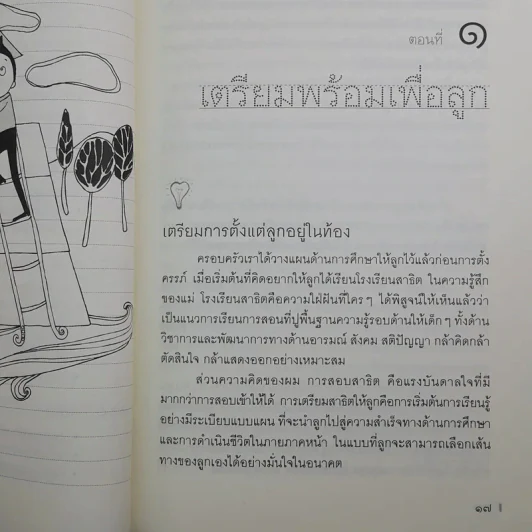 ตอนที่ ๑
เตรียมพร้อมเพื่อลูก
เตรียมการตั้งแต่ลูกอยู่ในท้อง
ครอบครัวเราได้วางแผนด้านการศึกษาให้ลูกไว้แล้วก่อนการตั้ง
ครรภ์ เมื่อเริ่มต้นที่คิดอยากให้ลูกได้เรียนโรงเรียนสาธิต ในความรู้สึก
ของแม่ โรงเรียนสาธิตคือความใฝ่ฝันที่ใครๆ ได้พิสูจน์ให้เห็นแล้วว่า
เป็นแนวการเรียนการสอนที่ปูพื้นฐานความรู้รอบด้านให้เด็กๆ ทั้งด้าน
วิชาการและพัฒนาการทางด้านอารมณ์ สังคม สติปัญญา กล้าคิดกล้า
ตัดสินใจ กล้าแสดงออกอย่างเหมาะสม
ส่วนความคิดของผม การสอบสาธิต คือแรงบันดาลใจที่มี
มากกว่าการสอบเข้าให้ได้ การเตรียมสาธิตให้ลูกคือการเริ่มต้นการเรียนรู้
อย่างมีระเบียบแบบแผน ที่จะนำลูกไปสู่ความสำเร็จทางด้านการศึกษา
และการดำเนินชีวิตในภายภาคหน้า ในแบบที่ลูกจะสามารถเลือกเส้น
ทางของลูกเองได้อย่างมั่นใจในอนาคต
๑๗